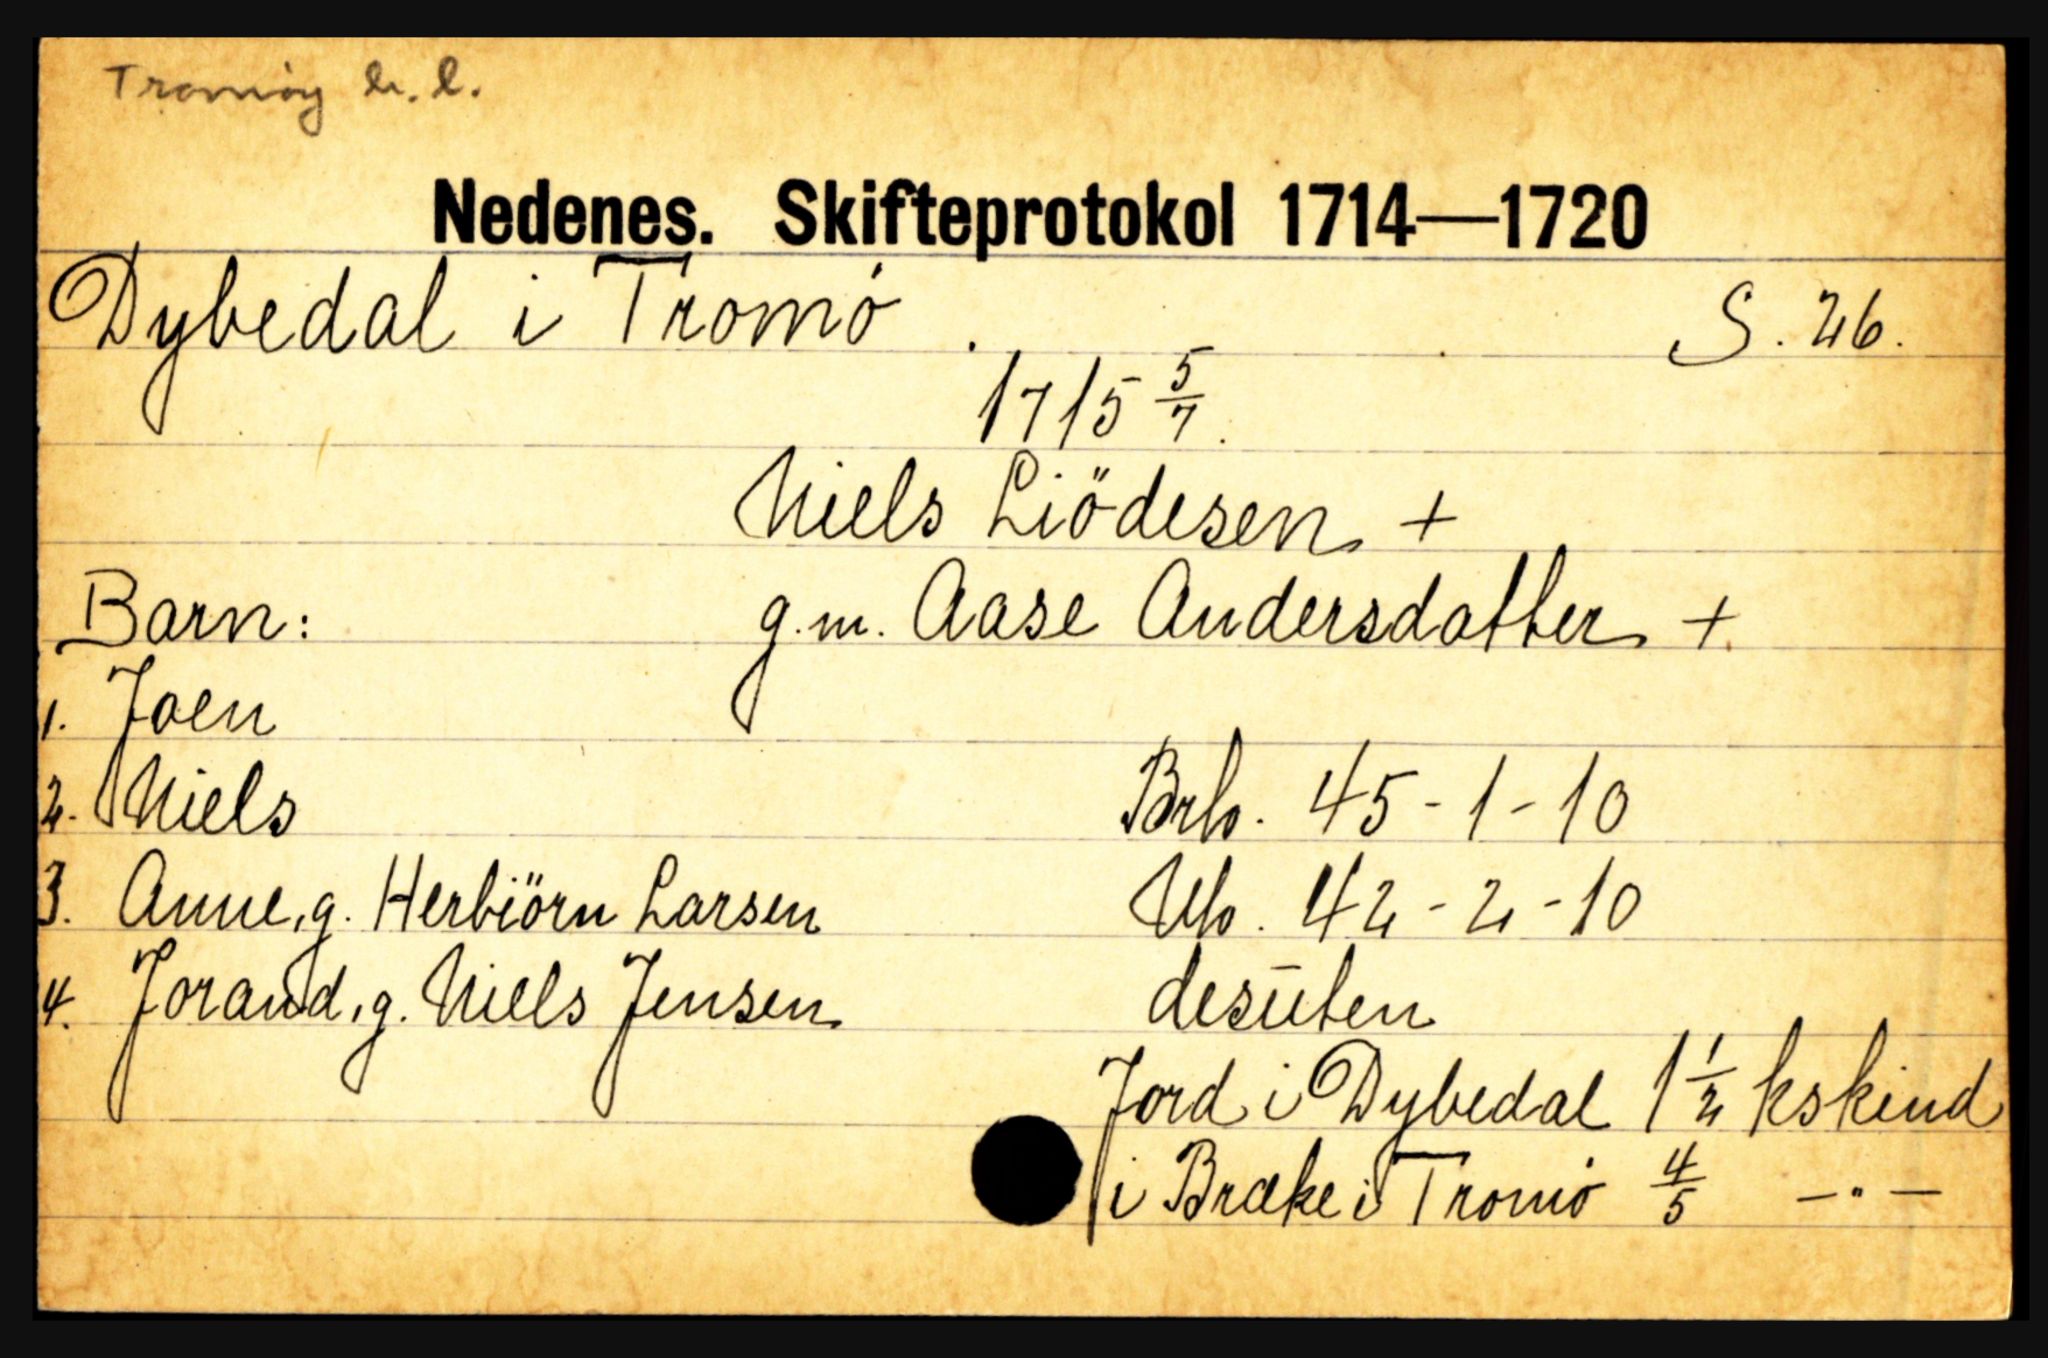 Tromøy h. l.
Nedenes. Skifteprotokol 1714—1720
Dybedal i Tromø. S. 26.
1715 5/7.
Niels Liödesen +
Barn: g.m. Aase Andersdatter +
1. Joen
2. Niels Brb. 45-1-10
3. Anne, g. Herbiörn Larsen Nb. 42-2-10
4. Jorand, g. Niels Jensen desuten
Jord i Dybedal 1 1/2 kskind
i Bræke i Tromø 4/5 —"—